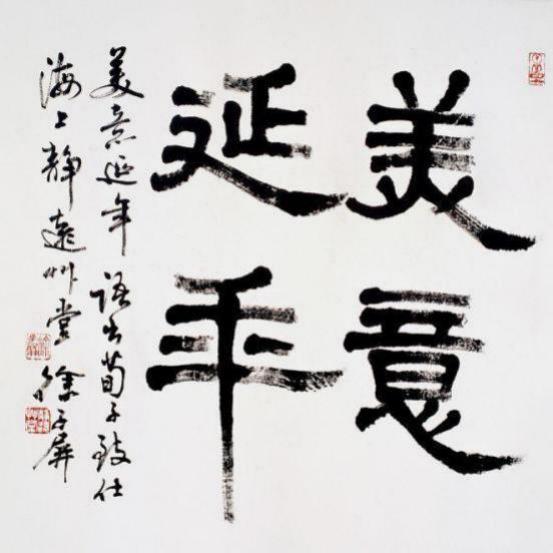 美意
延年
美意延年 語出荀子致仕
海上静遠草堂 徐子屏